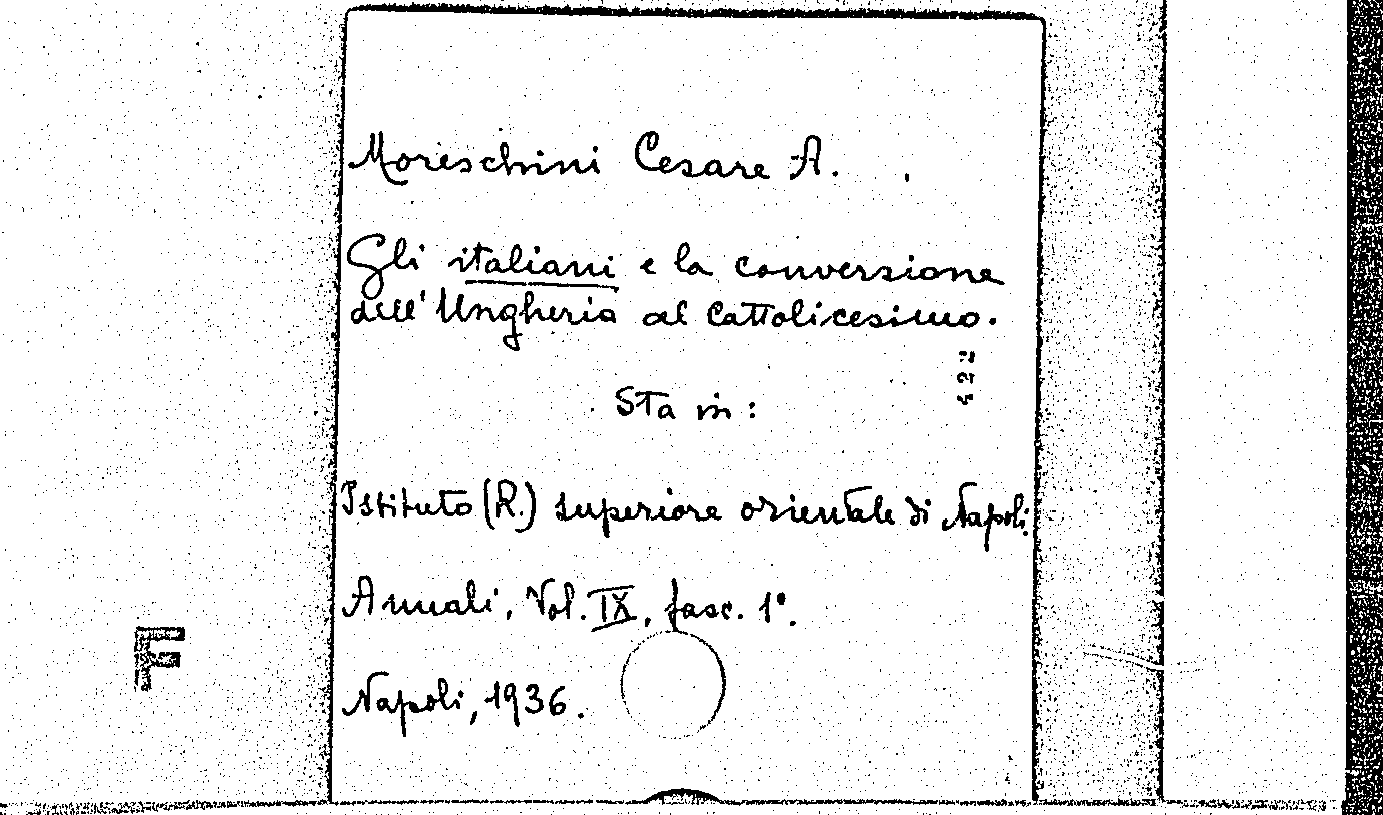 Moreschini Cesare A.
Gli italiani e la conversione
dell'Ungheria al Cattolicesimo.
Sta in:
Istituto (R.) superiore orientale di Napoli.
Annali, Vol. IX, fasc. 1°.
Napoli, 1936.
F